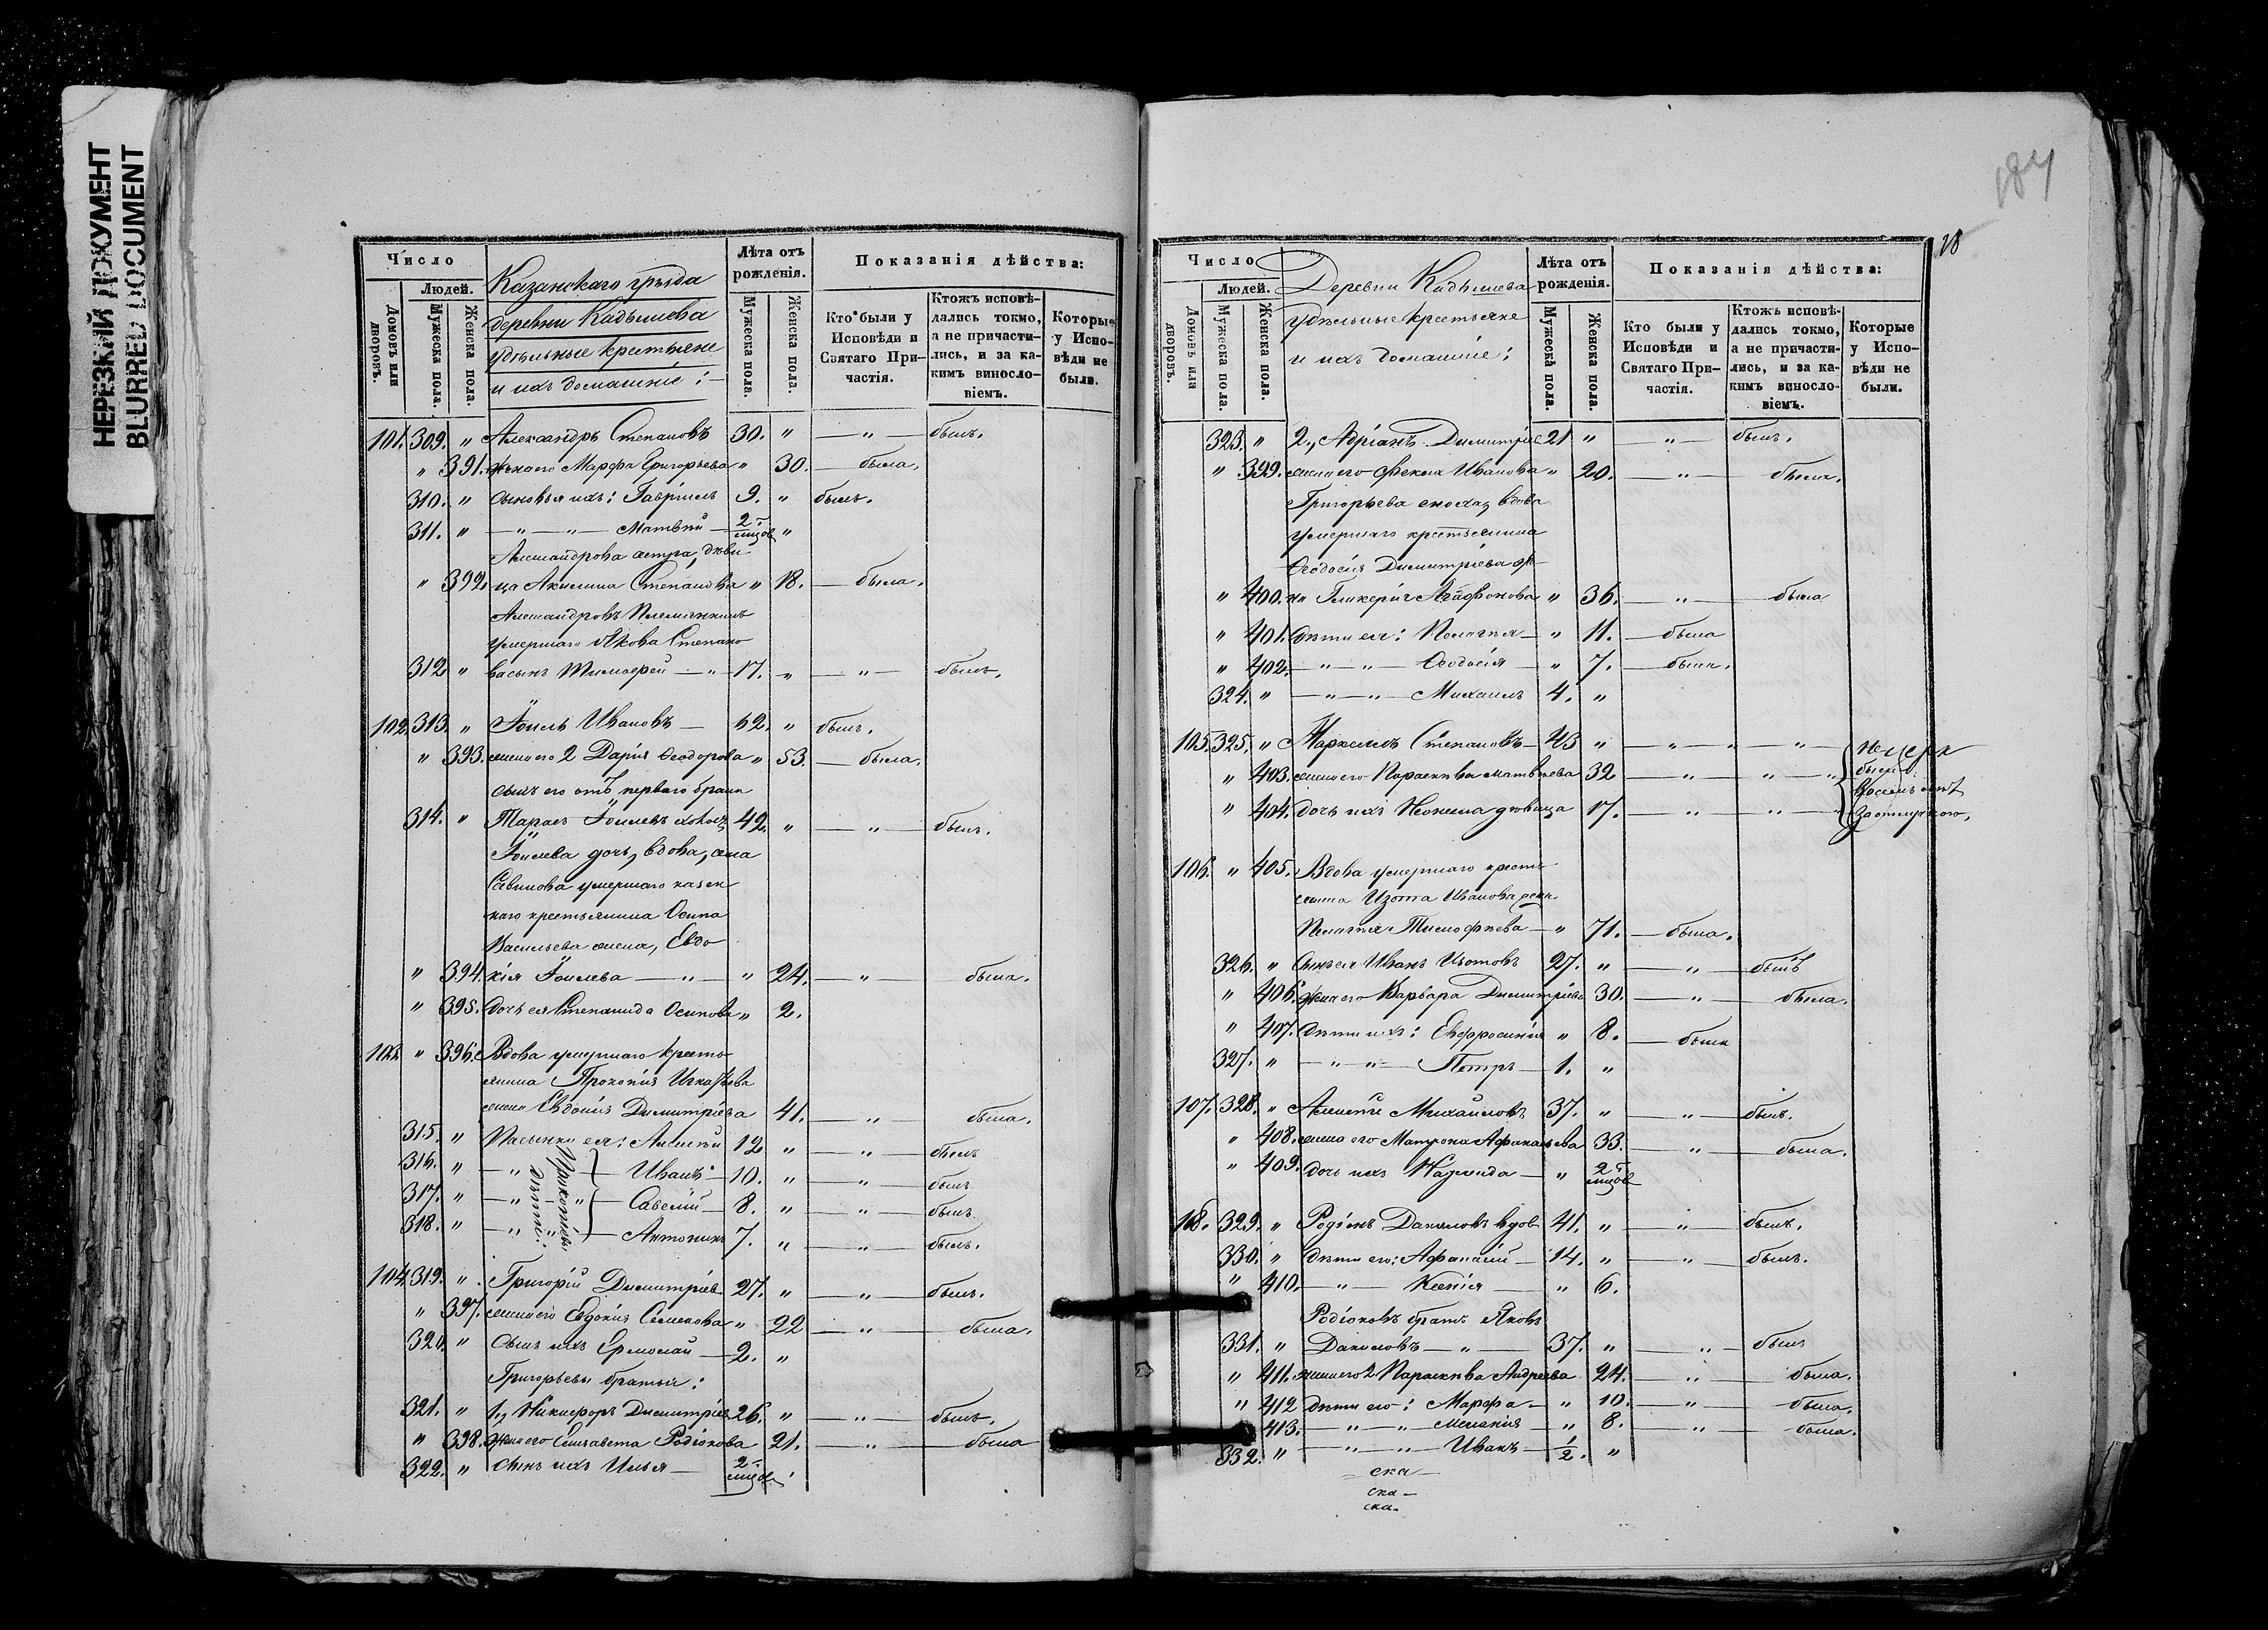 НЕРЕЗКИЙ ДОКУМЕНТ
BLURRED DOCUMENT
Число
Людей.
Домовъ или дворовъ.
Мужеска пола.
Женска пола.
Казанскаго уѣзда
деревни Кадышева
удѣльные крестьяне
и ихъ домашніе:—
Лѣта отъ рожденія.
Мужеска пола.
Женска пола.
Показанія дѣйства:
Кто были у Исповѣди и Святаго Причастія.
Ктожъ исповѣдались токмо, а не причастились, и за какимъ винословіемъ.
Которые у Исповѣди не были.
101. 309. „ Александръ Степановъ 30. „ — „ — былъ.
„ 391. жена его Марфа Григорьева „ 30. — была.
310. „ сыновья ихъ: Гавріилъ 9. „ былъ.
311. „ — „ — „ — Матвѣй 2 мѣсцов „
Александрова сестра, дѣви
„ 392. ца Акилина Степанова „ 18. — была.
Александровъ племянникъ
умершаго Якова Степано
312. „ ва сынъ Тимофей — „ — 17. „ — „ — былъ.
102. 313. „ Іоиль Ивановъ — 62. „ былъ.
„ 393. жена его 2 Дарія Ѳеодорова „ 53. — была.
сынъ его отъ перваго брака
314. „ Тарасъ Іоилевъ холост 42. „ — „ — былъ.
Іоилева дочь, вдова, села
Савинова умершаго казен
наго крестьянина Осипа
Васильева жена, Евдо
„ 394. кія Іоилева — „ — „ 24. — „ — была.
„ 395. дочь ея Степанида Осипова „ 2.
103. „ 396. Вдова умершаго кресть
янина Прокопія Игнатьева
жена Евдокія Димитріева 41. — „ — была.
315. „ Пасынки ея: Алексѣй 12 „ — „ — былъ
316. „ — „ — Иванъ — 10. „ — „ — былъ
317. „ — „ — „ Савелій — 8. „ — „ — былъ
318. „ — „ — „ — Антонинъ 7. „ — „ — былъ.
Прокопіевы дѣти:
104. 319. „ Григорій Димитріев 27. „ — „ — былъ.
„ 397. жена его Евдокія Семенова „ 22 — „ — была.
320. „ сынъ ихъ Ермолай — 2. „
Григорьевы братья:
321. „ 1, Никифоръ Димитріев 26. „ — „ — былъ.
„ 398. Жена его Елисавета Родіонова 21. — „ — была
322. „ сынъ ихъ Илья — 2 мѣсцов
184
28
Число
Людей.
Домовъ или дворовъ.
Мужеска пола.
Женска пола.
Деревни Кадышева
удѣльные крестьяне
и ихъ домашніе:
Лѣта отъ рожденія.
Мужеска пола.
Женска пола.
Показанія дѣйства:
Кто были у Исповѣди и Святаго Причастія.
Ктожъ исповѣдались токмо, а не причастились, и за какимъ винословіемъ.
Которые у Исповѣди не были.
323. „ 2, Адріанъ Димитріев 21 „ — „ — былъ.
„ 399. жена его Фекла Иванова „ 20. — „ — была.
Григорьева сноха, вдова
умершаго крестьянина
Ѳеодосія Димитріева же-
„ 400. на Гликерія Агафонова „ 36. — „ — была
„ 401. дѣти ея: Пелагея — „ 11. — была
„ 402. — „ — „ — Ѳеодосія — „ 7. — была.
324. „ — „ — „ — Михаилъ 4. „
105. 325. „ Маркеллъ Степановъ — 43 „ — „ — „ — „ —
„ 403. жена его Параскева Матвѣева 32 — „ — „ — „
„ 404. дочь ихъ Неонила дѣвица 17. — „ — „ —
106. „ 405. Вдова умершаго кресть
янина Изота Иванова жена
Пелагея Тимофѣева — „ 71. — была.
326. „ сынъ ея Иванъ Изотовъ 27. „ — „ — былъ
„ 406. жена его Варвара Димитріева 30. — „ — была.
„ 407. дѣти ихъ: Евфросинія „ 8. — была
327. „ — „ — „ — Петръ — 1. „
107. 328. „ Алексѣй Михайловъ 37. „ — „ — былъ.
„ 408. жена его Матрона Афанасьева 33. — „ — была.
„ 409. дочь ихъ Надежда — „ 2 мѣсцов
108. 329. „ Родіонъ Даниловъ вдов 41. „ — „ — былъ.
330. „ дѣти его: Афанасій — 14. „ — „ — былъ.
„ 410. — „ — Ксенія — „ 6.
Родіоновъ братъ Яковъ
331. „ Даниловъ — „ — 37. „ — „ — былъ
„ 411. жена его 2 Параскева Андреева 24. — „ — была.
„ 412 дѣти его: Марфа — „ 10. — „ — была.
413. — „ — „ — Меланія — „ 8. — „ — была.
332. „ — „ — „ — Иванъ — 1/2. „